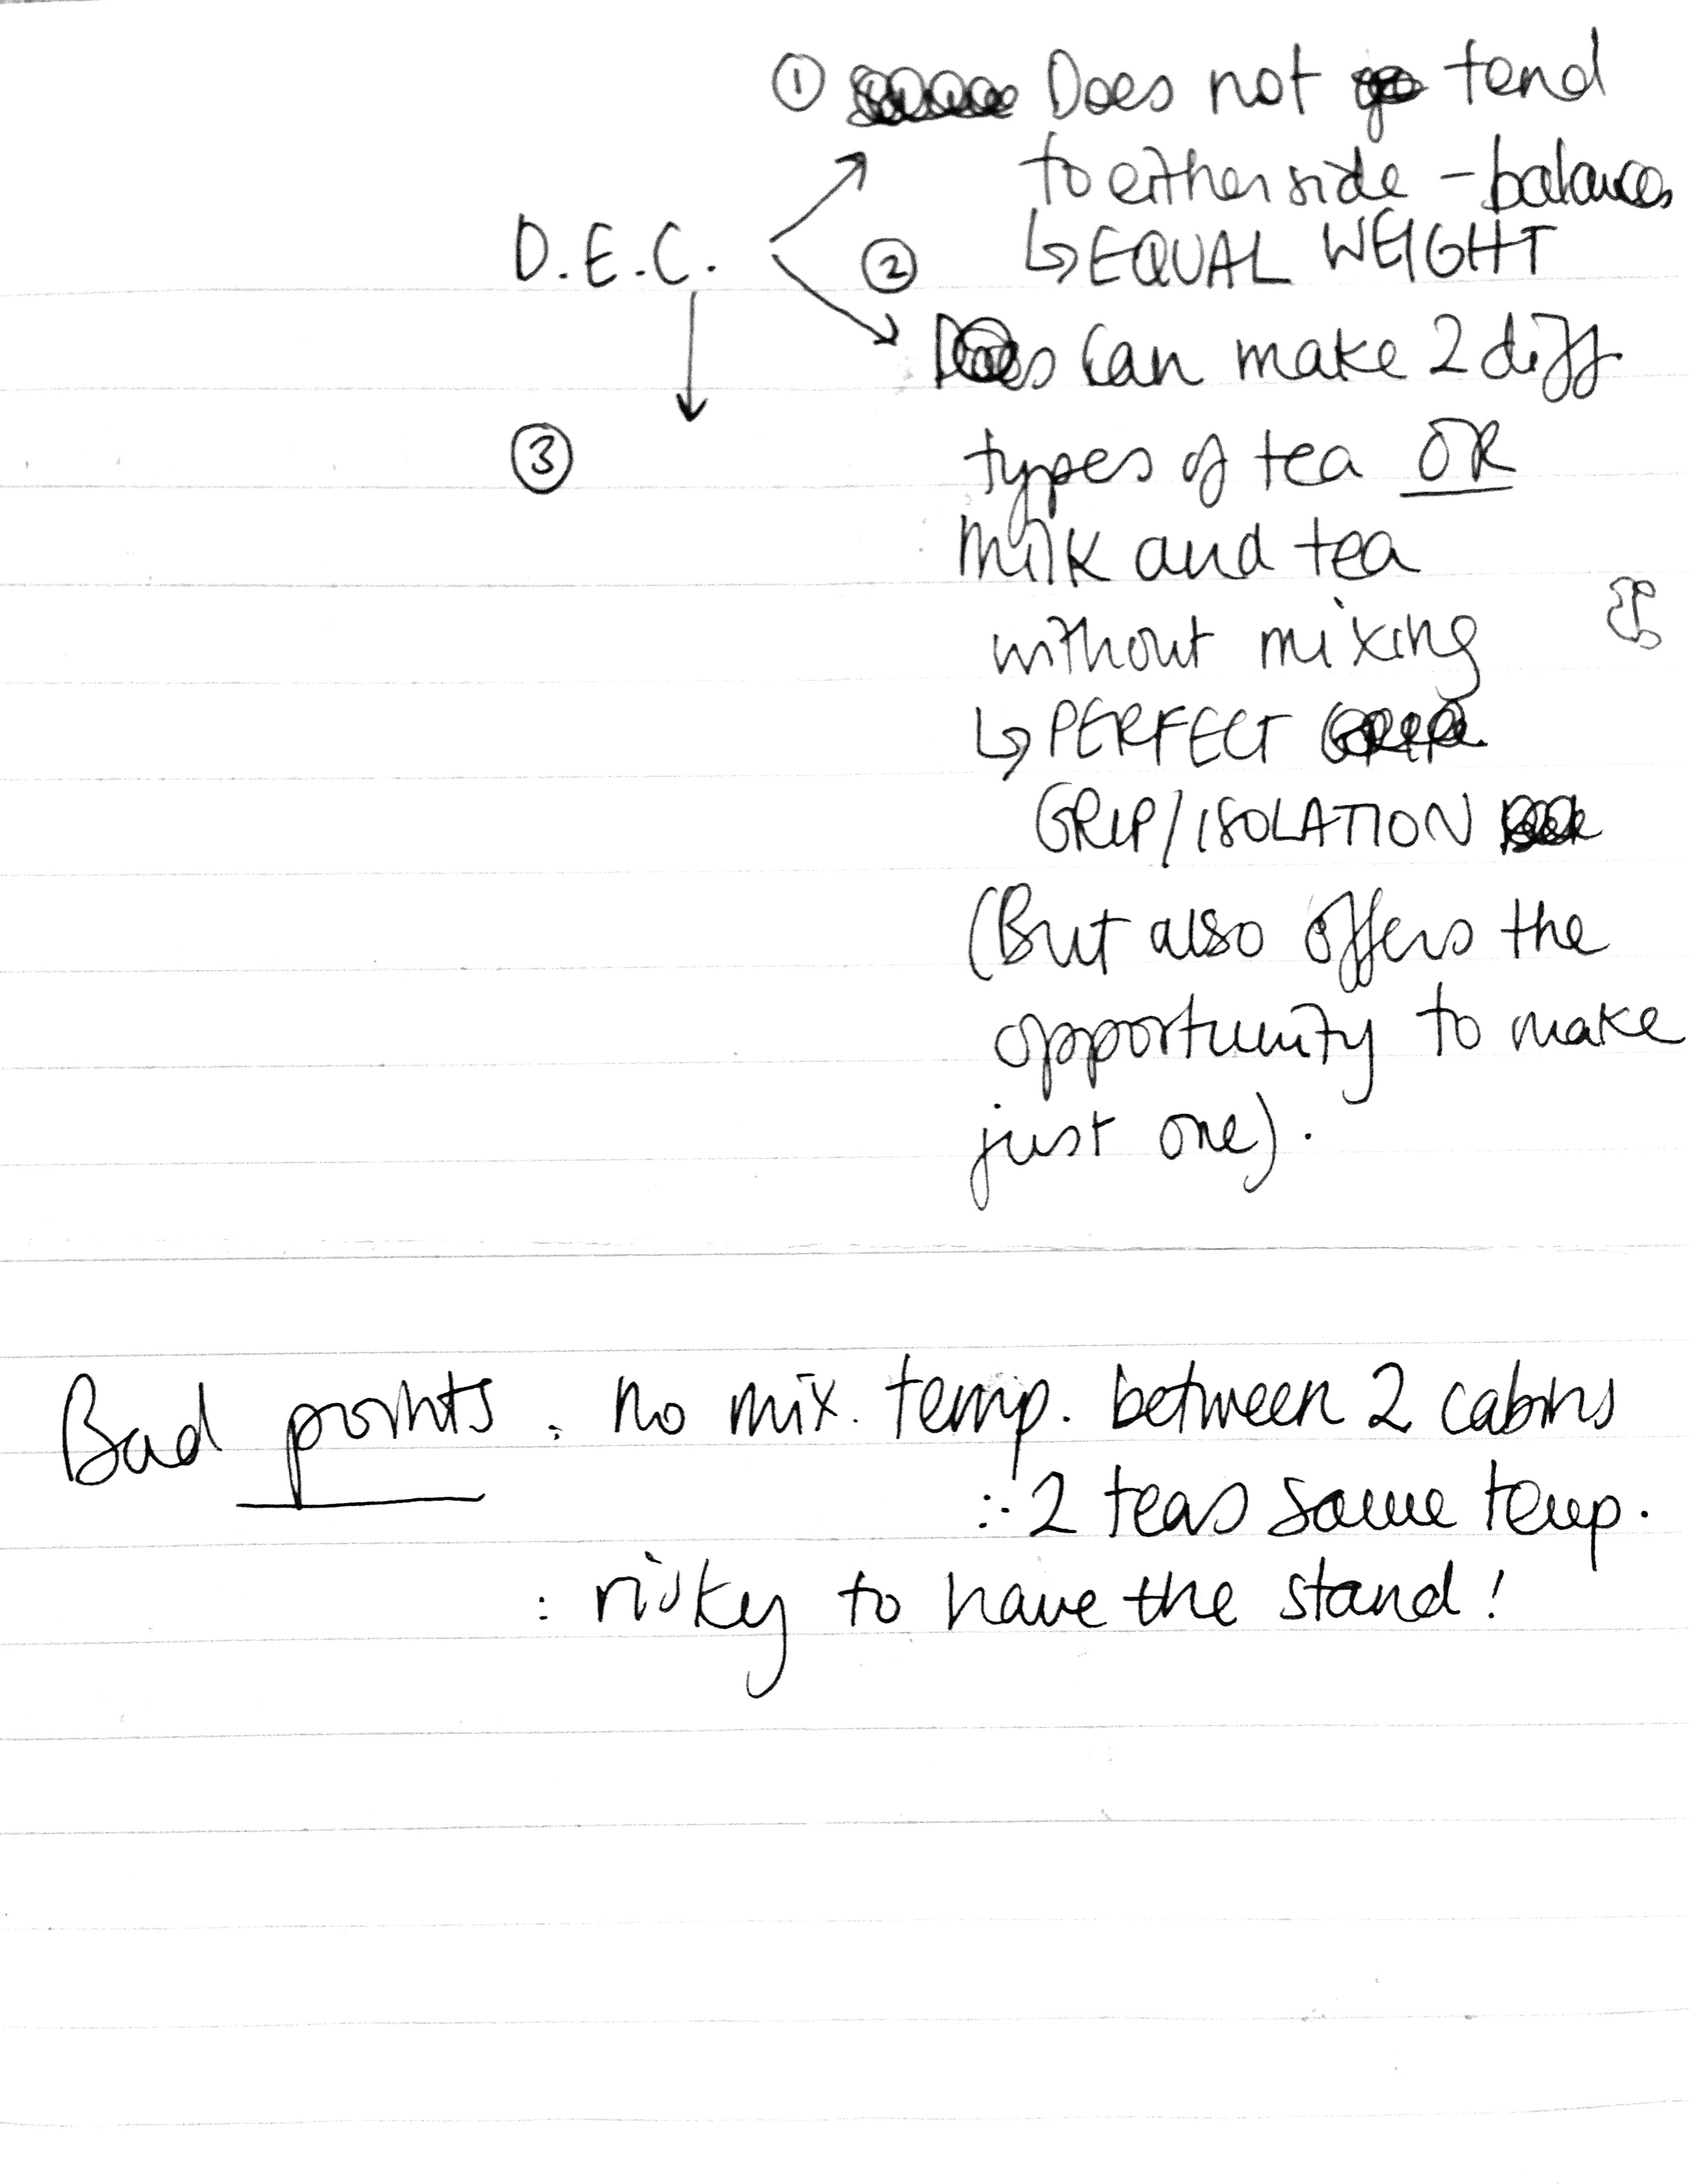 ① Does not tend
to either side - balances
D.E.C. ② ↳ EQUAL WEIGHT
Can make 2 diff
③ types of tea OR
milk and tea
without mixing
↳ PERFECT
GRIP/ISOLATION
(But also offers the
opportunity to make
just one).
Bad points : no mix. temp. between 2 cabins
∴ 2 teas same temp.
: risky to have the stand!